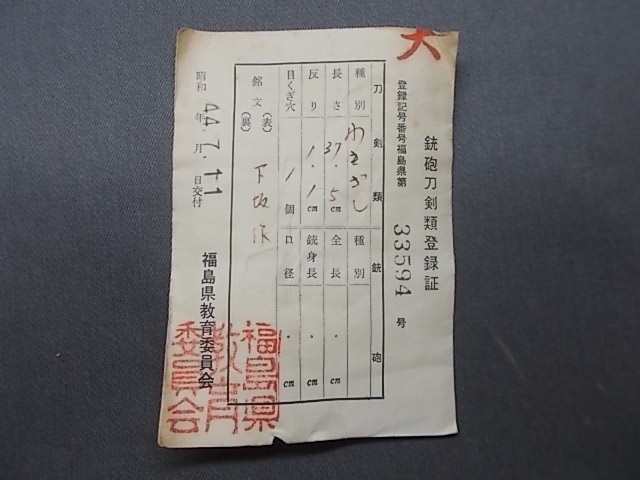 大
銃砲刀剣類登録証
登録記号番号福島県第 33594 号
刀剣類 銃砲
種別 わきざし 種別
長さ 37.5cm 全長 . cm
反り 1.1cm 銃身長 . cm
目くぎ穴 1個 口径 . cm
銘文 (表) 下坂作
(裏)
昭和 44年 7月 日交付
福島県教育委員会
福島県
教育
委員会